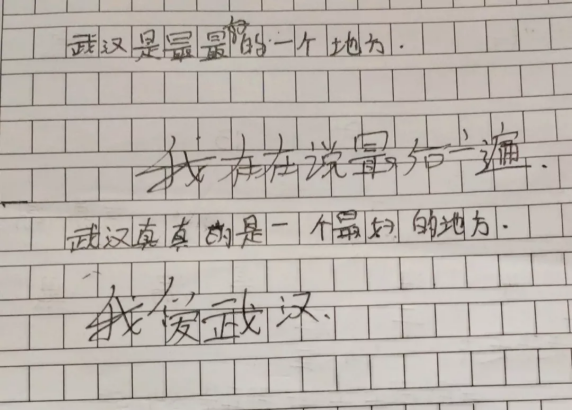 武汉是最最好的一个地方.
我在在说最后一遍.
武汉真真的是一个最好的地方.
我爱武汉.